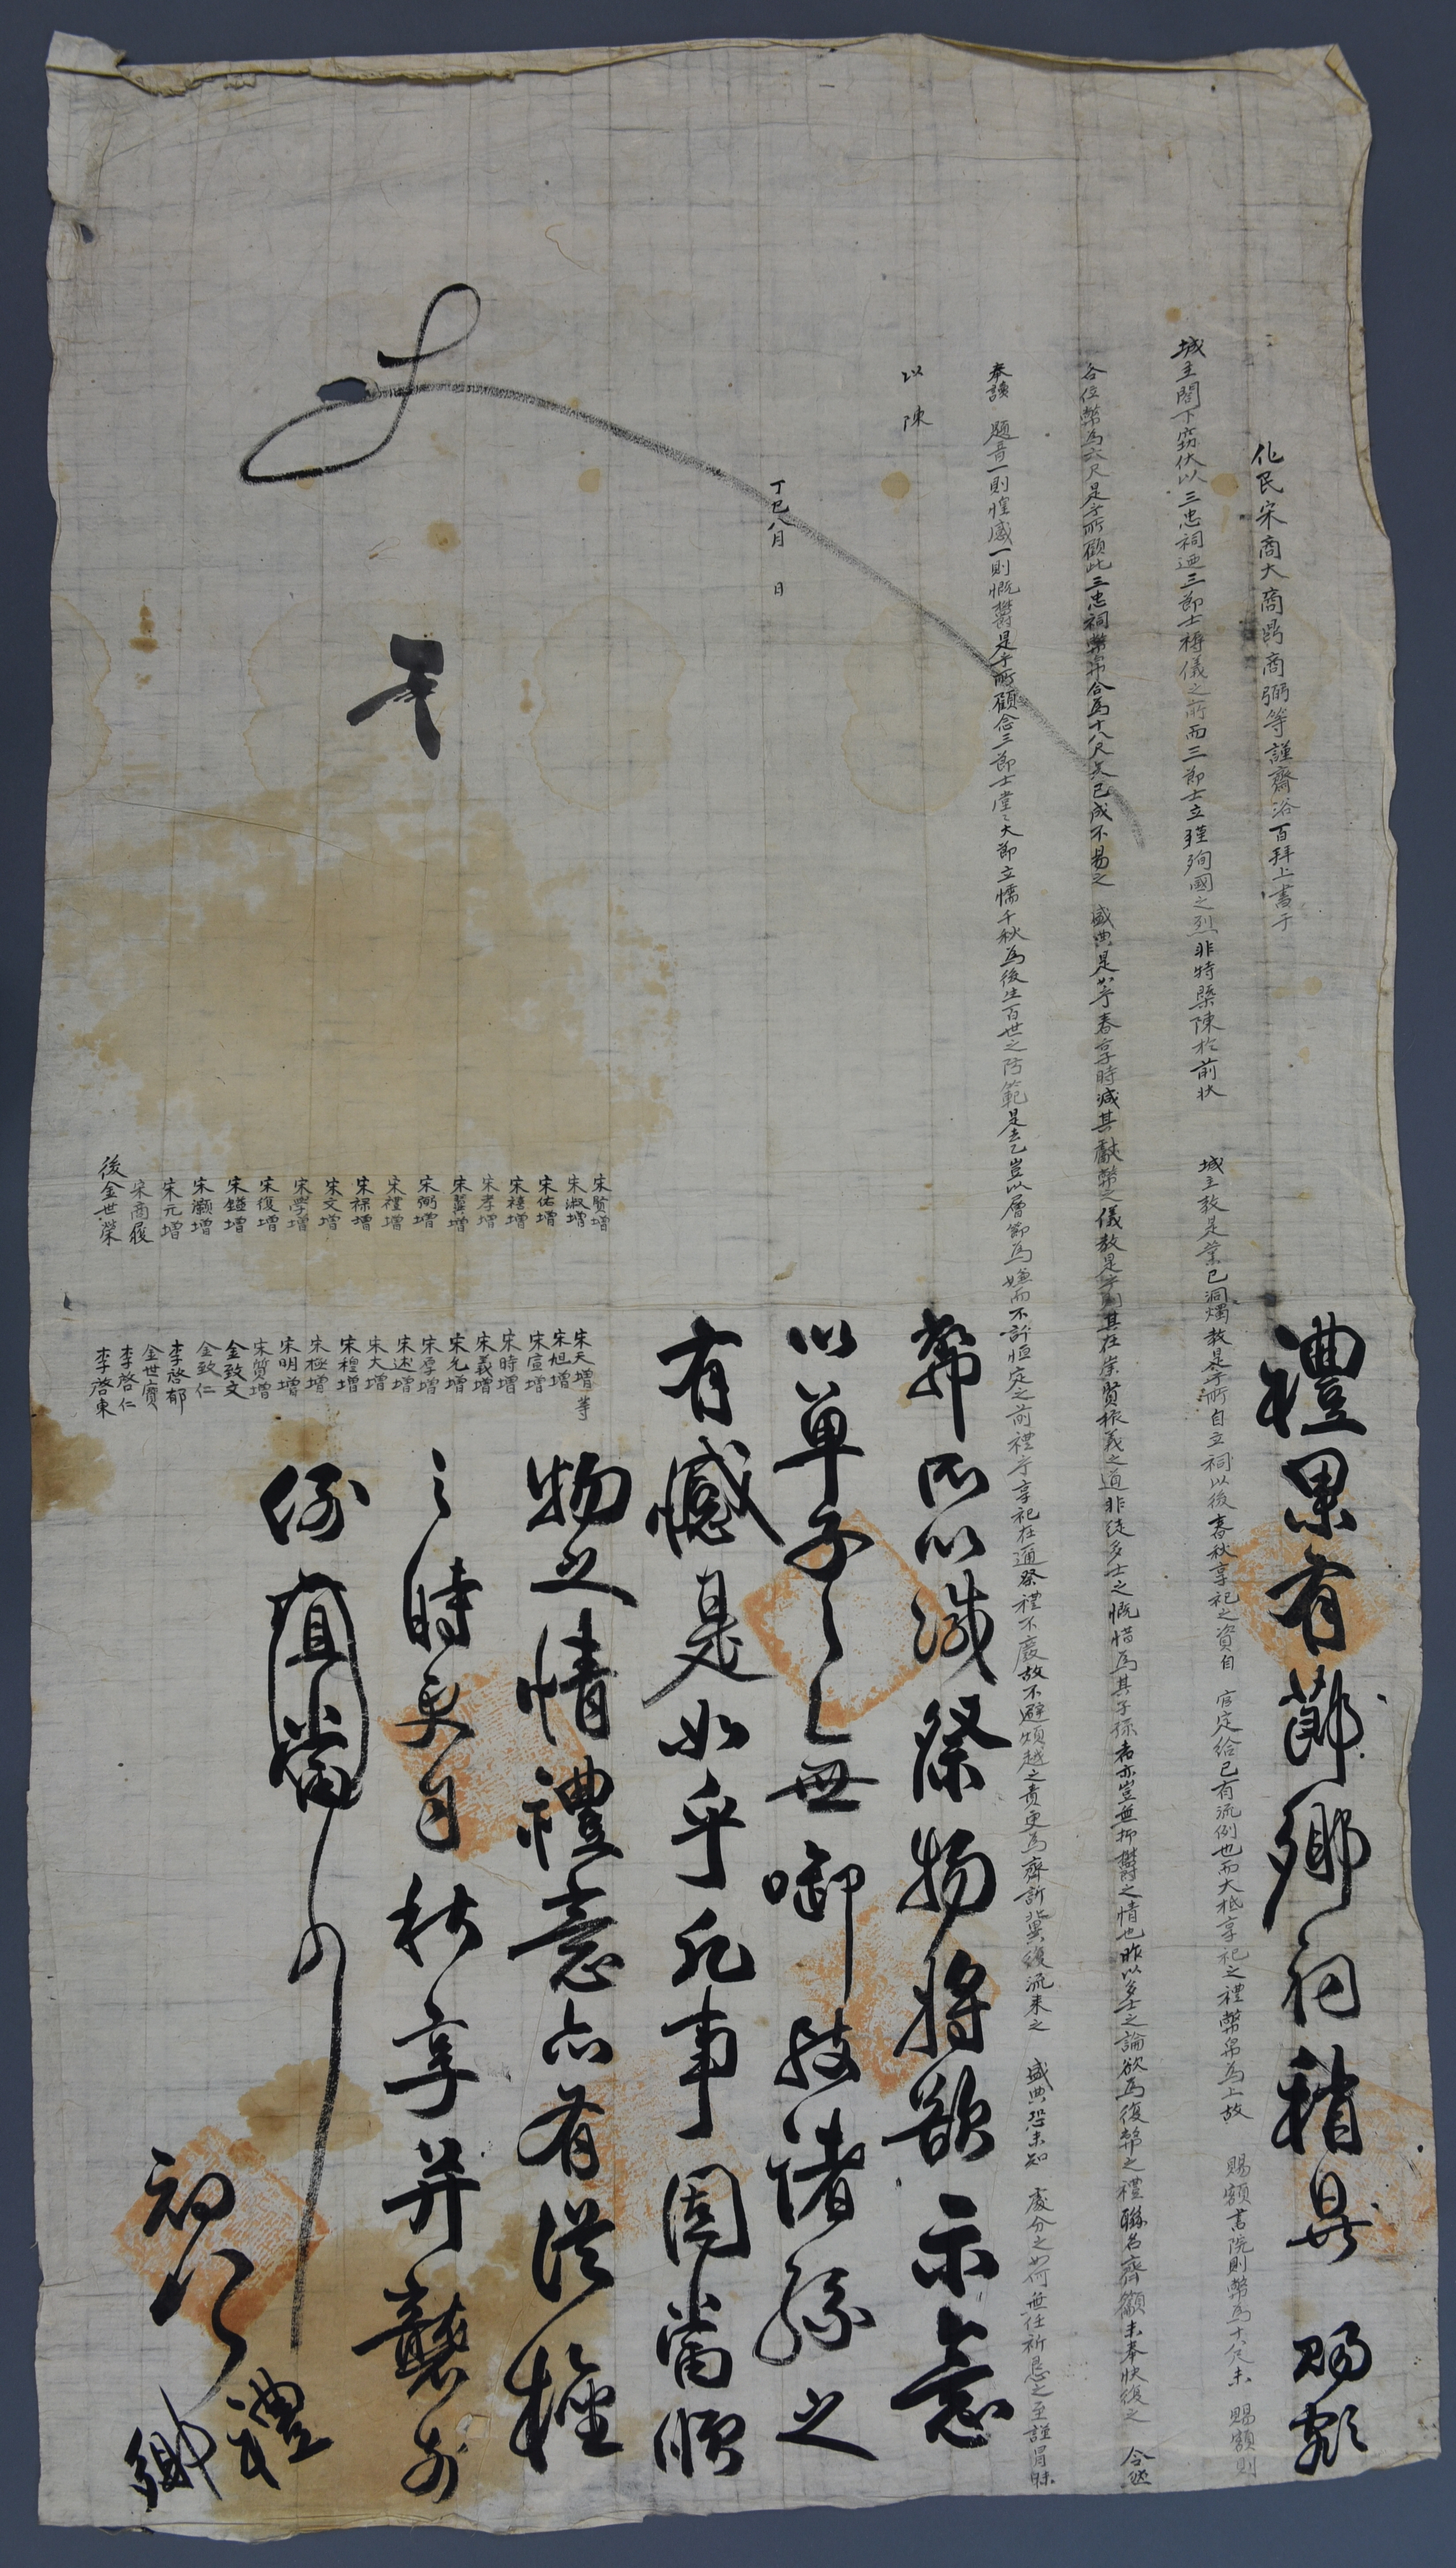 化民宋商大商鼎商弼等謹齋沐百拜上書于
城主閤下窃伏以三忠祠迺三節士之所而三節士立殣殉國之烈非特槩陳於前狀 城主敎是業已洞燭敎是乎所自立祠以後春秋享祀之資自 官定給已有流例也而大抵享祀之禮幣帛爲上故 賜額書院則幣爲十八尺未 賜額則
各位幣爲六尺是乎所顧此三忠祠幣帛合爲十八尺矣已成不易之 盛典是如乎春享時減其獻幣之儀敎是乎則其在崇賢振義之道非徒多士之慨惜爲其子孫者亦豈無抑鬱之情也昨以多士之論欲爲復幣之禮聯名齊籲未奉快復之 令題
奉讀 題音一則惶感一則慨鬱是乎所顧念三節士堂々大節立懦千秋爲後生百世之防範是去乙豈以層節爲嫌而不許恒定之前禮乎享祀在邇祭禮不廢故不避煩越之責更爲齊訴冀復流來之 盛典恐未知 處分之如何無任祈懇之至謹冒昧
以陳
丁巳八月 日
宋賢增
宋淑增
宋佑增
宋禧增
宋孝增
宋冀增
宋弼增
宋禮增
宋祿增
宋文增
宋學增
宋復增
宋鎰增
宋灝增
宋元增
宋商展
後金世榮
宋天增等
宋旭增
宋宣增
宋時增
宋義增
宋允增
宋厚增
宋述增
宋大增
宋穆增
宋極增
宋明增
宋質增
金致文
金致仁
李啓郁
金世賓
李啓仁
李啓東
禮果有節鄕祠稍異 賜額
幣所以減祭物將欲示意
以單子之無聊致諸孫之
有憾是如乎凡事固當順
物之情禮意亦有從權
之時更自秋享幷襲前
例宜當向事
初六 禮鄕